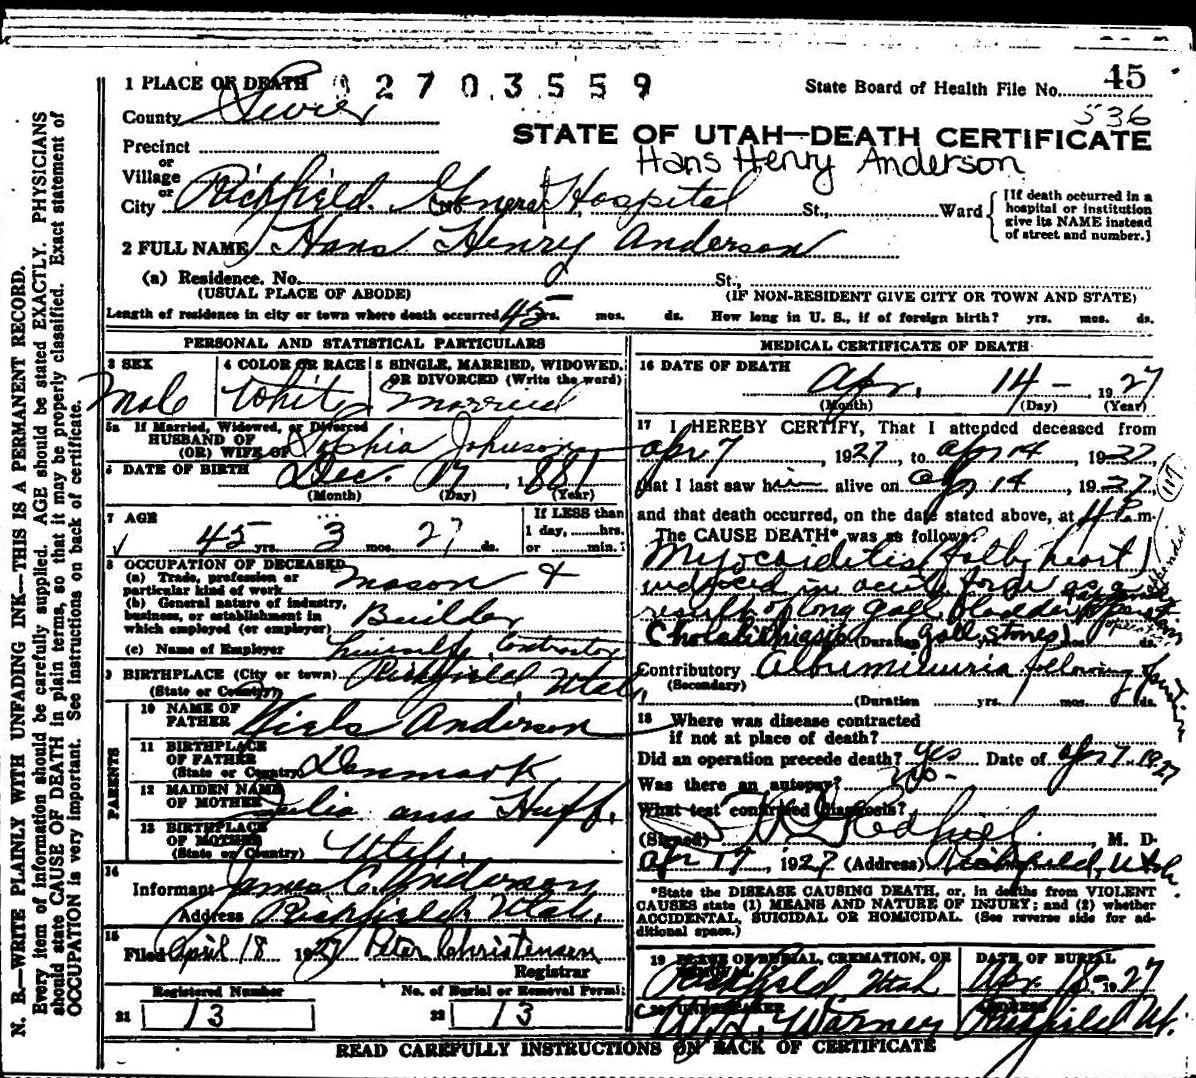 1 PLACE OF DEATH 2703559 State Board of Health File No. 45
County Sevier 536
STATE OF UTAH—DEATH CERTIFICATE
Precinct Hans Henry Anderson
or
Village
or
City Richfield. No. General Hospital St., Ward
[If death occurred in a
hospital or institution
give its NAME instead
of street and number.]
2 FULL NAME Hans Henry Anderson
(a) Residence. No. St.,
(USUAL PLACE OF ABODE) (IF NON-RESIDENT GIVE CITY OR TOWN AND STATE)
Length of residence in city or town where death occurred 45 yrs. mos. ds. How long in U. S., if of foreign birth? yrs. mos. ds.
PERSONAL AND STATISTICAL PARTICULARS
3 SEX 4 COLOR OR RACE 5 SINGLE, MARRIED, WIDOWED,
OR DIVORCED (Write the word)
Male White Married
5a If Married, Widowed, or Divorced
HUSBAND OF
(OR) WIFE OF Sophia Johnson
6 DATE OF BIRTH Dec. 17, 1881
(Month) (Day) (Year)
7 AGE If LESS than
1 day, hrs.
or min.?
45 yrs. 3 mos. 27 ds.
8 OCCUPATION OF DECEASED
(a) Trade, profession or
particular kind of work Mason &
(b) General nature of industry,
business, or establishment in
which employed (or employer) Builder
(c) Name of Employer Contractor
9 BIRTHPLACE (City or town) Richfield, Utah
(State or Country)
PARENTS
10 NAME OF
FATHER Niels Anderson
11 BIRTHPLACE
OF FATHER
(State or Country) Denmark
12 MAIDEN NAME
OF MOTHER Julia Ann Huff.
13 BIRTHPLACE
OF MOTHER
(State or Country) Utah.
14
Informant James C. Anderson
Address Richfield Utah.
15
Filed April 18 1927 Peter Christensen
Registrar
Registered Number No. of Burial or Removal Permit
21 13 22 13
MEDICAL CERTIFICATE OF DEATH
16 DATE OF DEATH
Apr. 14 - 1927
(Month) (Day) (Year)
17 I HEREBY CERTIFY, That I attended deceased from
Apr 7, 1927, to Apr 14, 1927
that I last saw him alive on Apr 14, 1927
and that death occurred, on the date stated above, at 4 P. m.
The CAUSE DEATH* was as follows:
Myocarditis (fatty heart)
induced in acute form as a
result of long gall bladder operation
Cholelithiasis (Duration gall stones) ds.
Contributory Albuminuria following
(Secondary)
(Duration yrs. mos. ds.
18 Where was disease contracted
if not at place of death?
Did an operation precede death? yes Date of Apr 7, 1927
Was there an autopsy? no -
What test confirmed diagnosis?
(Signed) M. D.
Apr 17, 1927 (Address) Richfield, Utah.
*State the DISEASE CAUSING DEATH, or, in deaths from VIOLENT
CAUSES state (1) MEANS AND NATURE OF INJURY; and (2) whether
ACCIDENTAL, SUICIDAL OR HOMICIDAL. (See reverse side for ad-
ditional space.)
19 PLACE OF BURIAL, CREMATION, OR DATE OF BURIAL
REMOVAL
Richfield Utah Apr. 18 - 1927
20 UNDERTAKER ADDRESS
Warney Richfield Ut.
READ CAREFULLY INSTRUCTIONS ON BACK OF CERTIFICATE
N. B.—WRITE PLAINLY WITH UNFADING INK—THIS IS A PERMANENT RECORD.
Every item of information should be carefully supplied. AGE should be stated EXACTLY. PHYSICIANS
should state CAUSE OF DEATH in plain terms, so that it may be properly classified. Exact statement of
OCCUPATION is very important. See instructions on back of certificate.